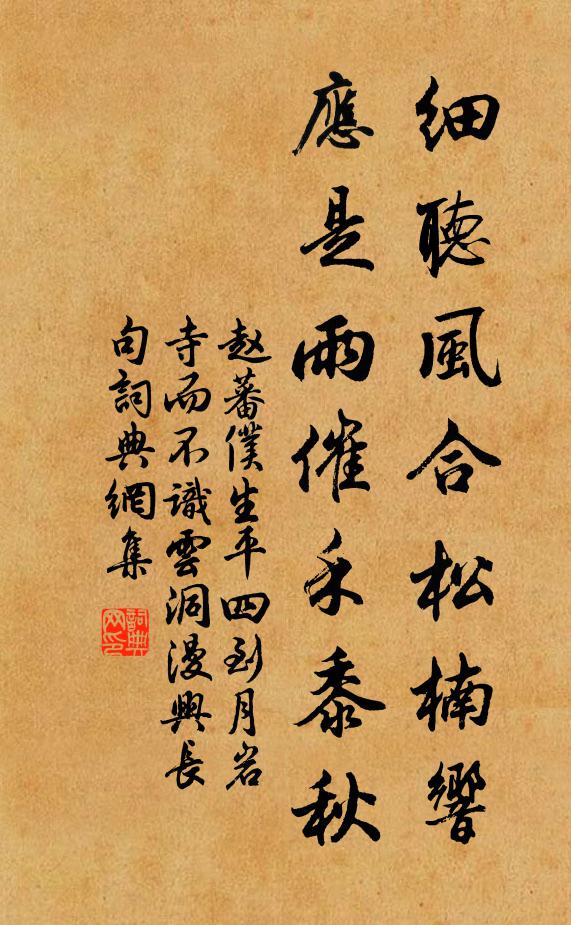 细聽風合松楠響
應是雨催禾黍秋
赵蕃僕生平四到月岩
寺而不識雲洞漫興長
句詞典網集
詞典网印